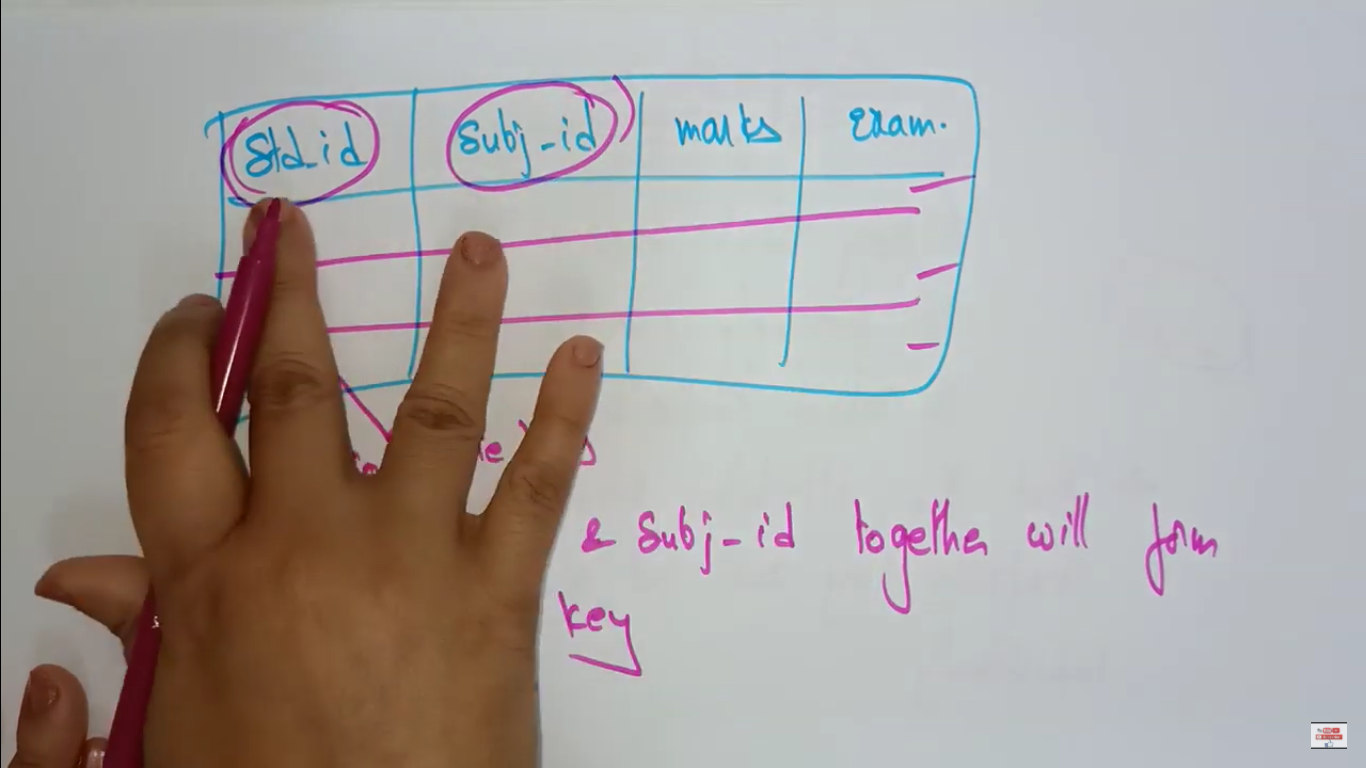 Std_id Subj-id marks Exam.
& Subj-id together will form
key